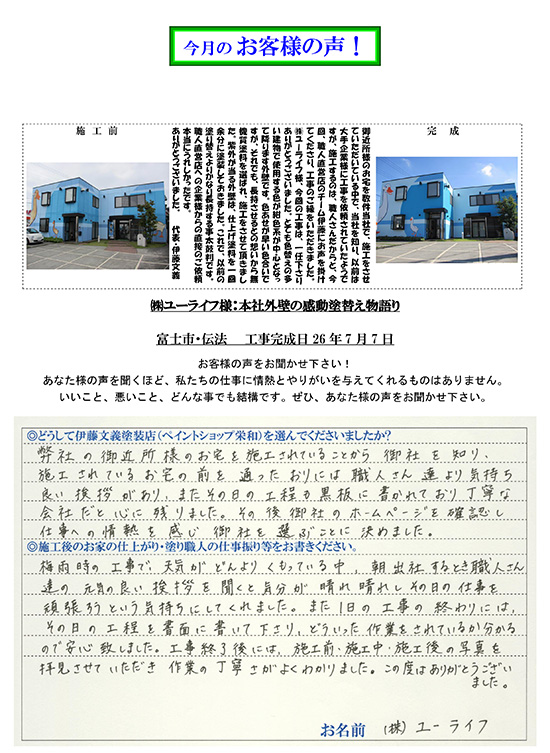 今月の お客様の声！
施 工 前
御近所様のお宅を数件当社で、施工をさせ
ていただいている中で、当社を知り、以前は
大手企業様に工事を依頼されていたようで
すが、施工するのは、職人さんだからと、今
回、職人直営店のチーム伊藤にお声を掛け
てくださり、工事のご縁をいただきました。
㈱ユーライフ様、今回の工事は、一任下さり
ありがとうございました。とても色替えの多
い建物で使用する色が紺色系が中心となっ
て降ります外壁です。色あせが早い色合いで
すが、それでも、長持させるとの想いから無
機質塗料を選ばれ、施工をさせて頂きまし
た。紫外が当る外壁は、仕上げ塗料を一回
余分に塗装しておきました。これで、以前の
塗り替えよりかなり長持する事太鼓判です。
職人直営店への企業様からの直接のご依頼
本当にうれしかったです。
ありがとうございました。 代表・伊藤文義
完 成
㈱ユーライフ様：本社外壁の感動塗替え物語り
富士市・伝法 工事完成日 26 年 7 月 7 日
お客様の声をお聞かせ下さい！
あなた様の声を聞くほど、私たちの仕事に情熱とやりがいを与えてくれるものはありません。
いいこと、悪いこと、どんな事でも結構です。ぜひ、あなた様の声をお聞かせ下さい。
◎どうして伊藤文義塗装店（ペイントショップ栄和）を選んでくださいましたか？
弊社の御近所様のお宅を施工されていることから 御社を知り、
施工されているお宅の前を通ったおりには職人さん達より気持ち
良い挨拶があり、またその日の工程も黒板に書かれており丁寧な
会社だと心に残りました。その後御社のホームページを確認し
仕事への情熱を感じ 御社を選ぶことに決めました。
◎施工後のお家の仕上がり・塗り職人の仕事振り等をお書きください。
梅雨時の工事で、天気がどんよりくもっている中、朝出社するとき職人さん
達の元気の良い挨拶を聞くと気分が晴れ晴れしその日の仕事を
頑張ろうという気持ちにしてくれました。また1日の工事の終わりには、
その日の工程を書面に書いて下さり、どういった作業をされているか分かる
ので安心致しました。工事終了後には、施工前・施工中・施工後の写真を
拝見させていただき 作業の丁寧さがよくわかりました。この度はありがとうござい
ました。
お名前 （株）ユーライフ